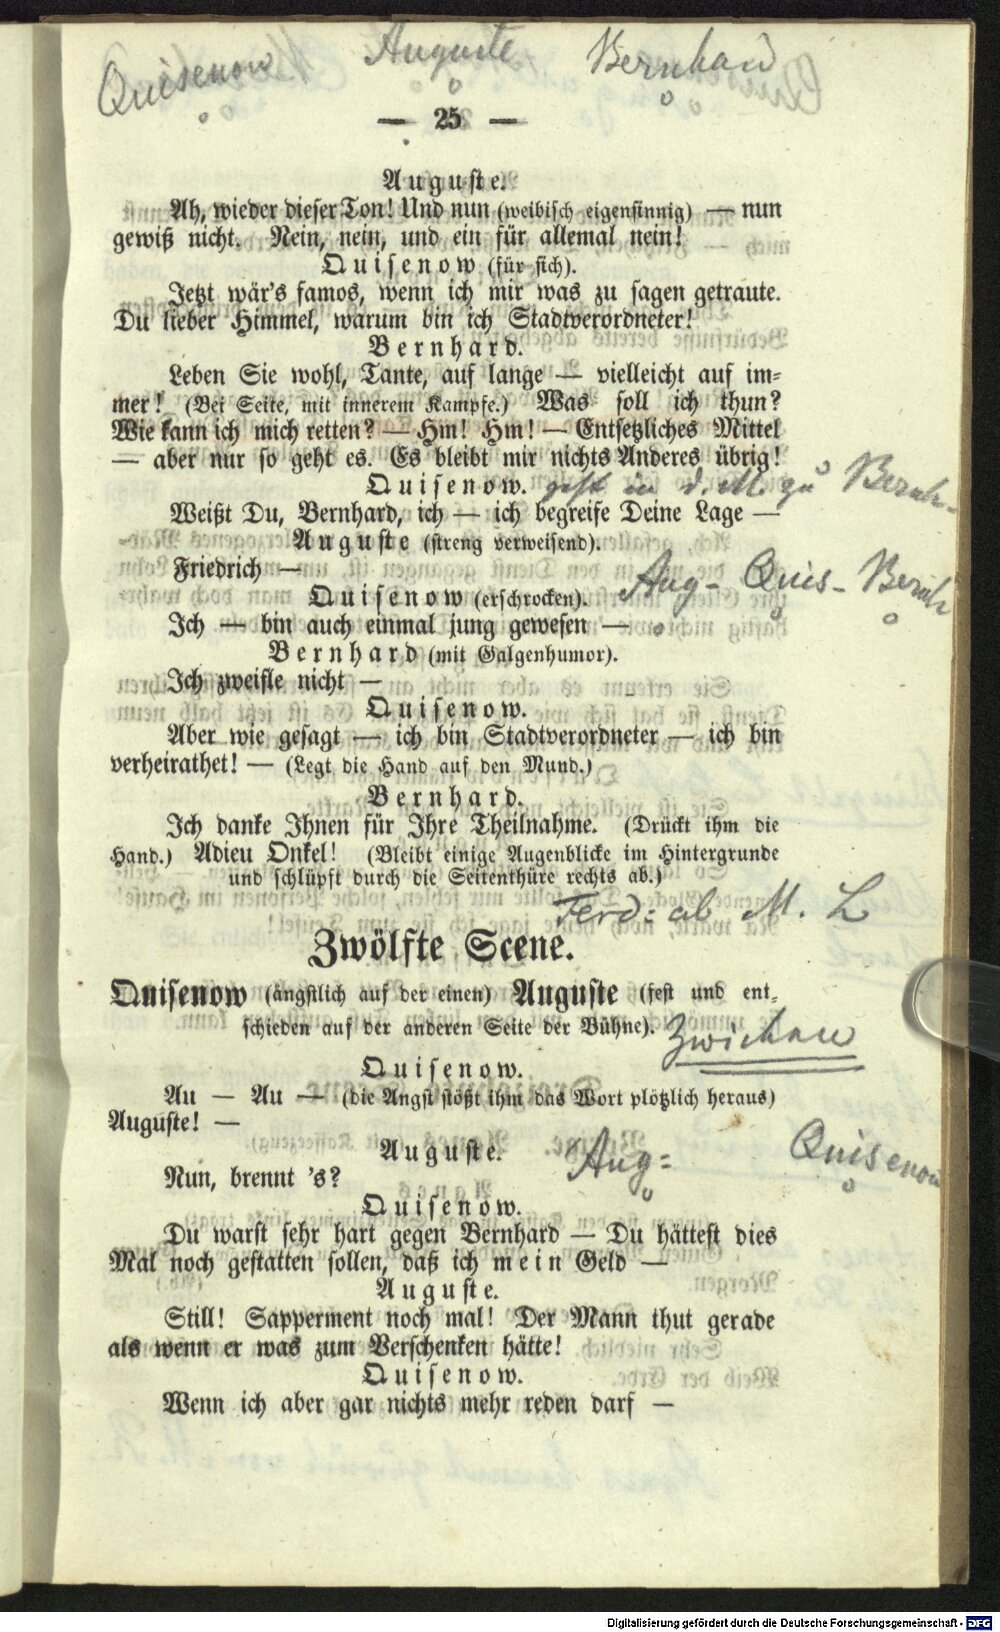 Quisenow Auguste Bernhard
— 25 —
Auguste.
Ah, wieder dieser Ton! Und nun (weibisch eigensinnig) — nun
gewiß nicht. Nein, nein, und ein für allemal nein!
Quisenow (für sich).
Jetzt wär's famos, wenn ich mir was zu sagen getraute.
Du lieber Himmel, warum bin ich Stadtverordneter!
Bernhard.
Leben Sie wohl, Tante, auf lange — vielleicht auf im-
mer! (Bei Seite, mit innerem Kampfe.) Was soll ich thun?
Wie kann ich mich retten? — Hm! Hm! — Entsetzliches Mittel
— aber nur so geht es. Es bleibt mir nichts Anderes übrig!
Quisenow. geht in d. M. zu Bernh-
Weißt Du, Bernhard, ich — ich begreife Deine Lage —
Auguste (streng verweisend).
Friedrich —
Aug- Quis- Bernh
Quisenow (erschrocken).
Ich — bin auch einmal jung gewesen —
Bernhard (mit Galgenhumor).
Ich zweifle nicht —
Quisenow.
Aber wie gesagt — ich bin Stadtverordneter — ich bin
verheirathet! — (Legt die Hand auf den Mund.)
Bernhard.
Ich danke Ihnen für Ihre Theilnahme. (Drückt ihm die
Hand.) Adieu Onkel! (Bleibt einige Augenblicke im Hintergrunde
und schlüpft durch die Seitenthüre rechts ab.)
Ferd: ab M. L
Zwölfte Scene.
Quisenow (ängstlich auf der einen) Auguste (fest und ent-
schieden auf der anderen Seite der Bühne).
Quisenow.
Au — Au — (die Angst stößt ihm das Wort plötzlich heraus)
Auguste! —
Auguste. Aug: Quisenow
Nun, brennt 's?
Quisenow.
Du warst sehr hart gegen Bernhard — Du hättest dies
Mal noch gestatten sollen, daß ich mein Geld —
Auguste.
Still! Sapperment noch mal! Der Mann thut gerade
als wenn er was zum Verschenken hätte!
Quisenow.
Wenn ich aber gar nichts mehr reden darf —
Digitalisierung gefördert durch die Deutsche Forschungsgemeinschaft - DFG